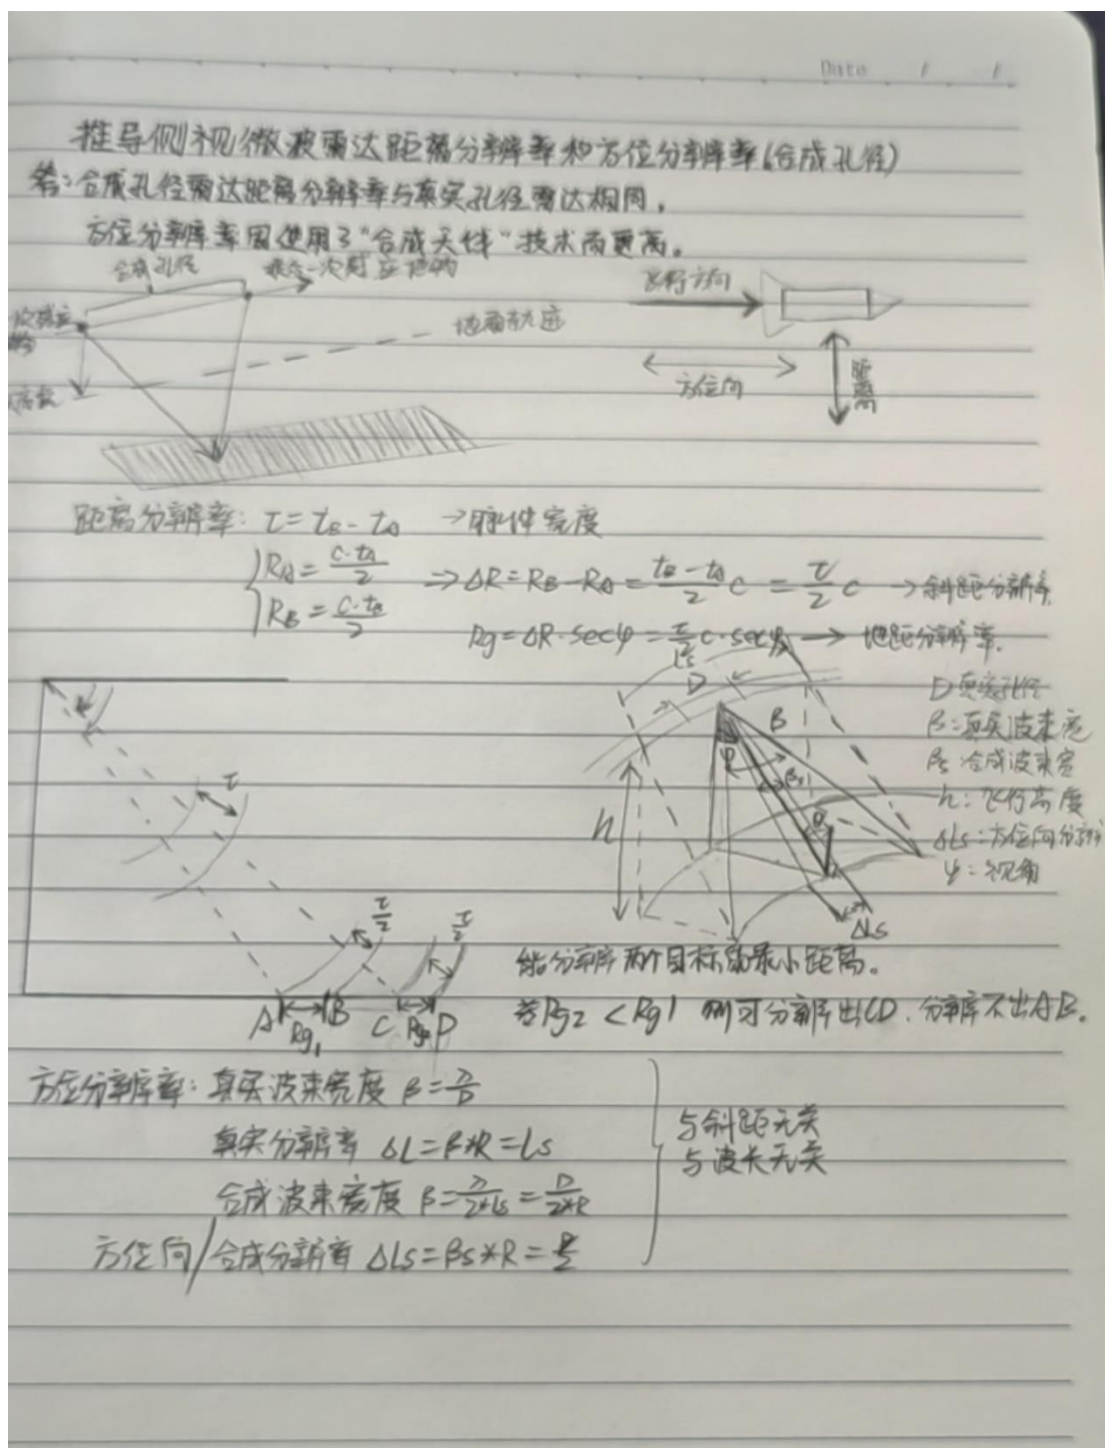 Date / /
推导侧视微波雷达距离分辨率和方位分辨率(合成孔径)
答:合成孔径雷达距离分辨率与真实孔径雷达相同,
方位分辨率因使用了"合成天线"技术而更高。
合成孔径
最后一次感应
地面轨迹
飞行方向
方位向
距离
距离分辨率: τ = tB - tA → 脉冲宽度
RA = c·tA/2
RB = c·tB/2
⇒ ΔR = RB - RA = (tB - tA)/2 c = τ/2 c → 斜距分辨率
Rg = ΔR·secφ = τ/2 c·secφ → 地距分辨率.
Ls
D
β
βs
φ
h
ΔLs
D 真实孔径
β:真实波束宽
βs:合成波束宽
h:飞行高度
ΔLs:方位向分辨
φ:视角
τ
τ/2
τ/2
A B C D
Rg1
Rg2
能分辨率两个目标的最小距离。
若Rg2 < Rg1 则可分辨出CD,分辨不出AB。
方位分辨率:真实波束宽度 β = λ/D
真实分辨率 ΔL = β*R = Ls
合成波束宽度 β = λ/2*Ls = D/2*R
方位向/合成分辨率 ΔLs = βs*R = D/2
与斜距无关
与波长无关